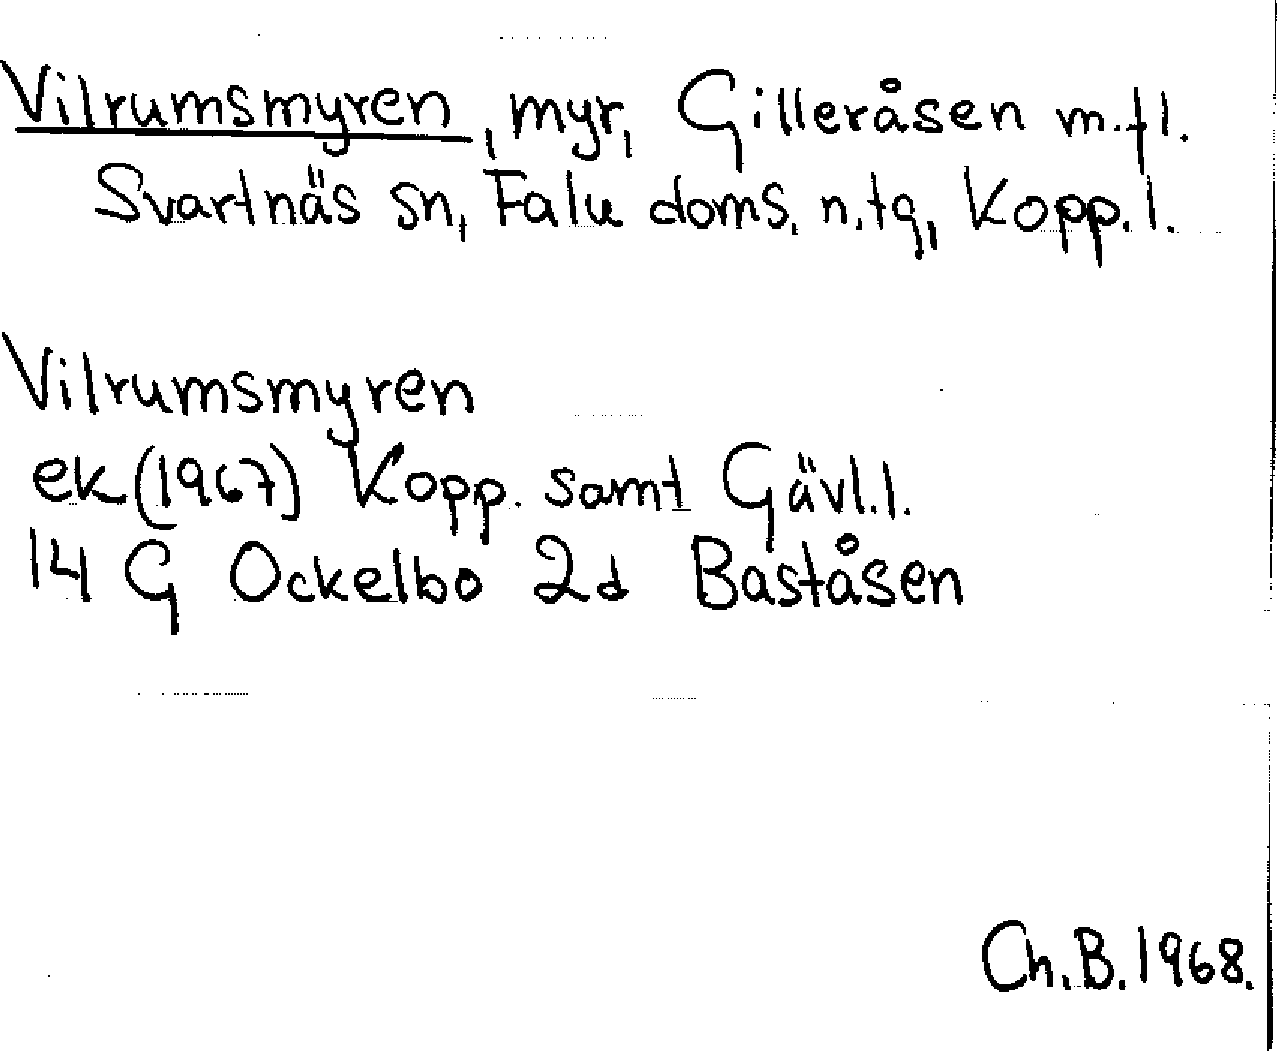 Vilrumsmyren, myr, Gilleråsen m.fl.
Svartnäs sn, Falu doms. n.tg, Kopp.l.
Vilrumsmyren
ek (1967) Kopp. samt Gävl.l.
14 G Ockelbo 2d Baståsen
Ch.B.1968.